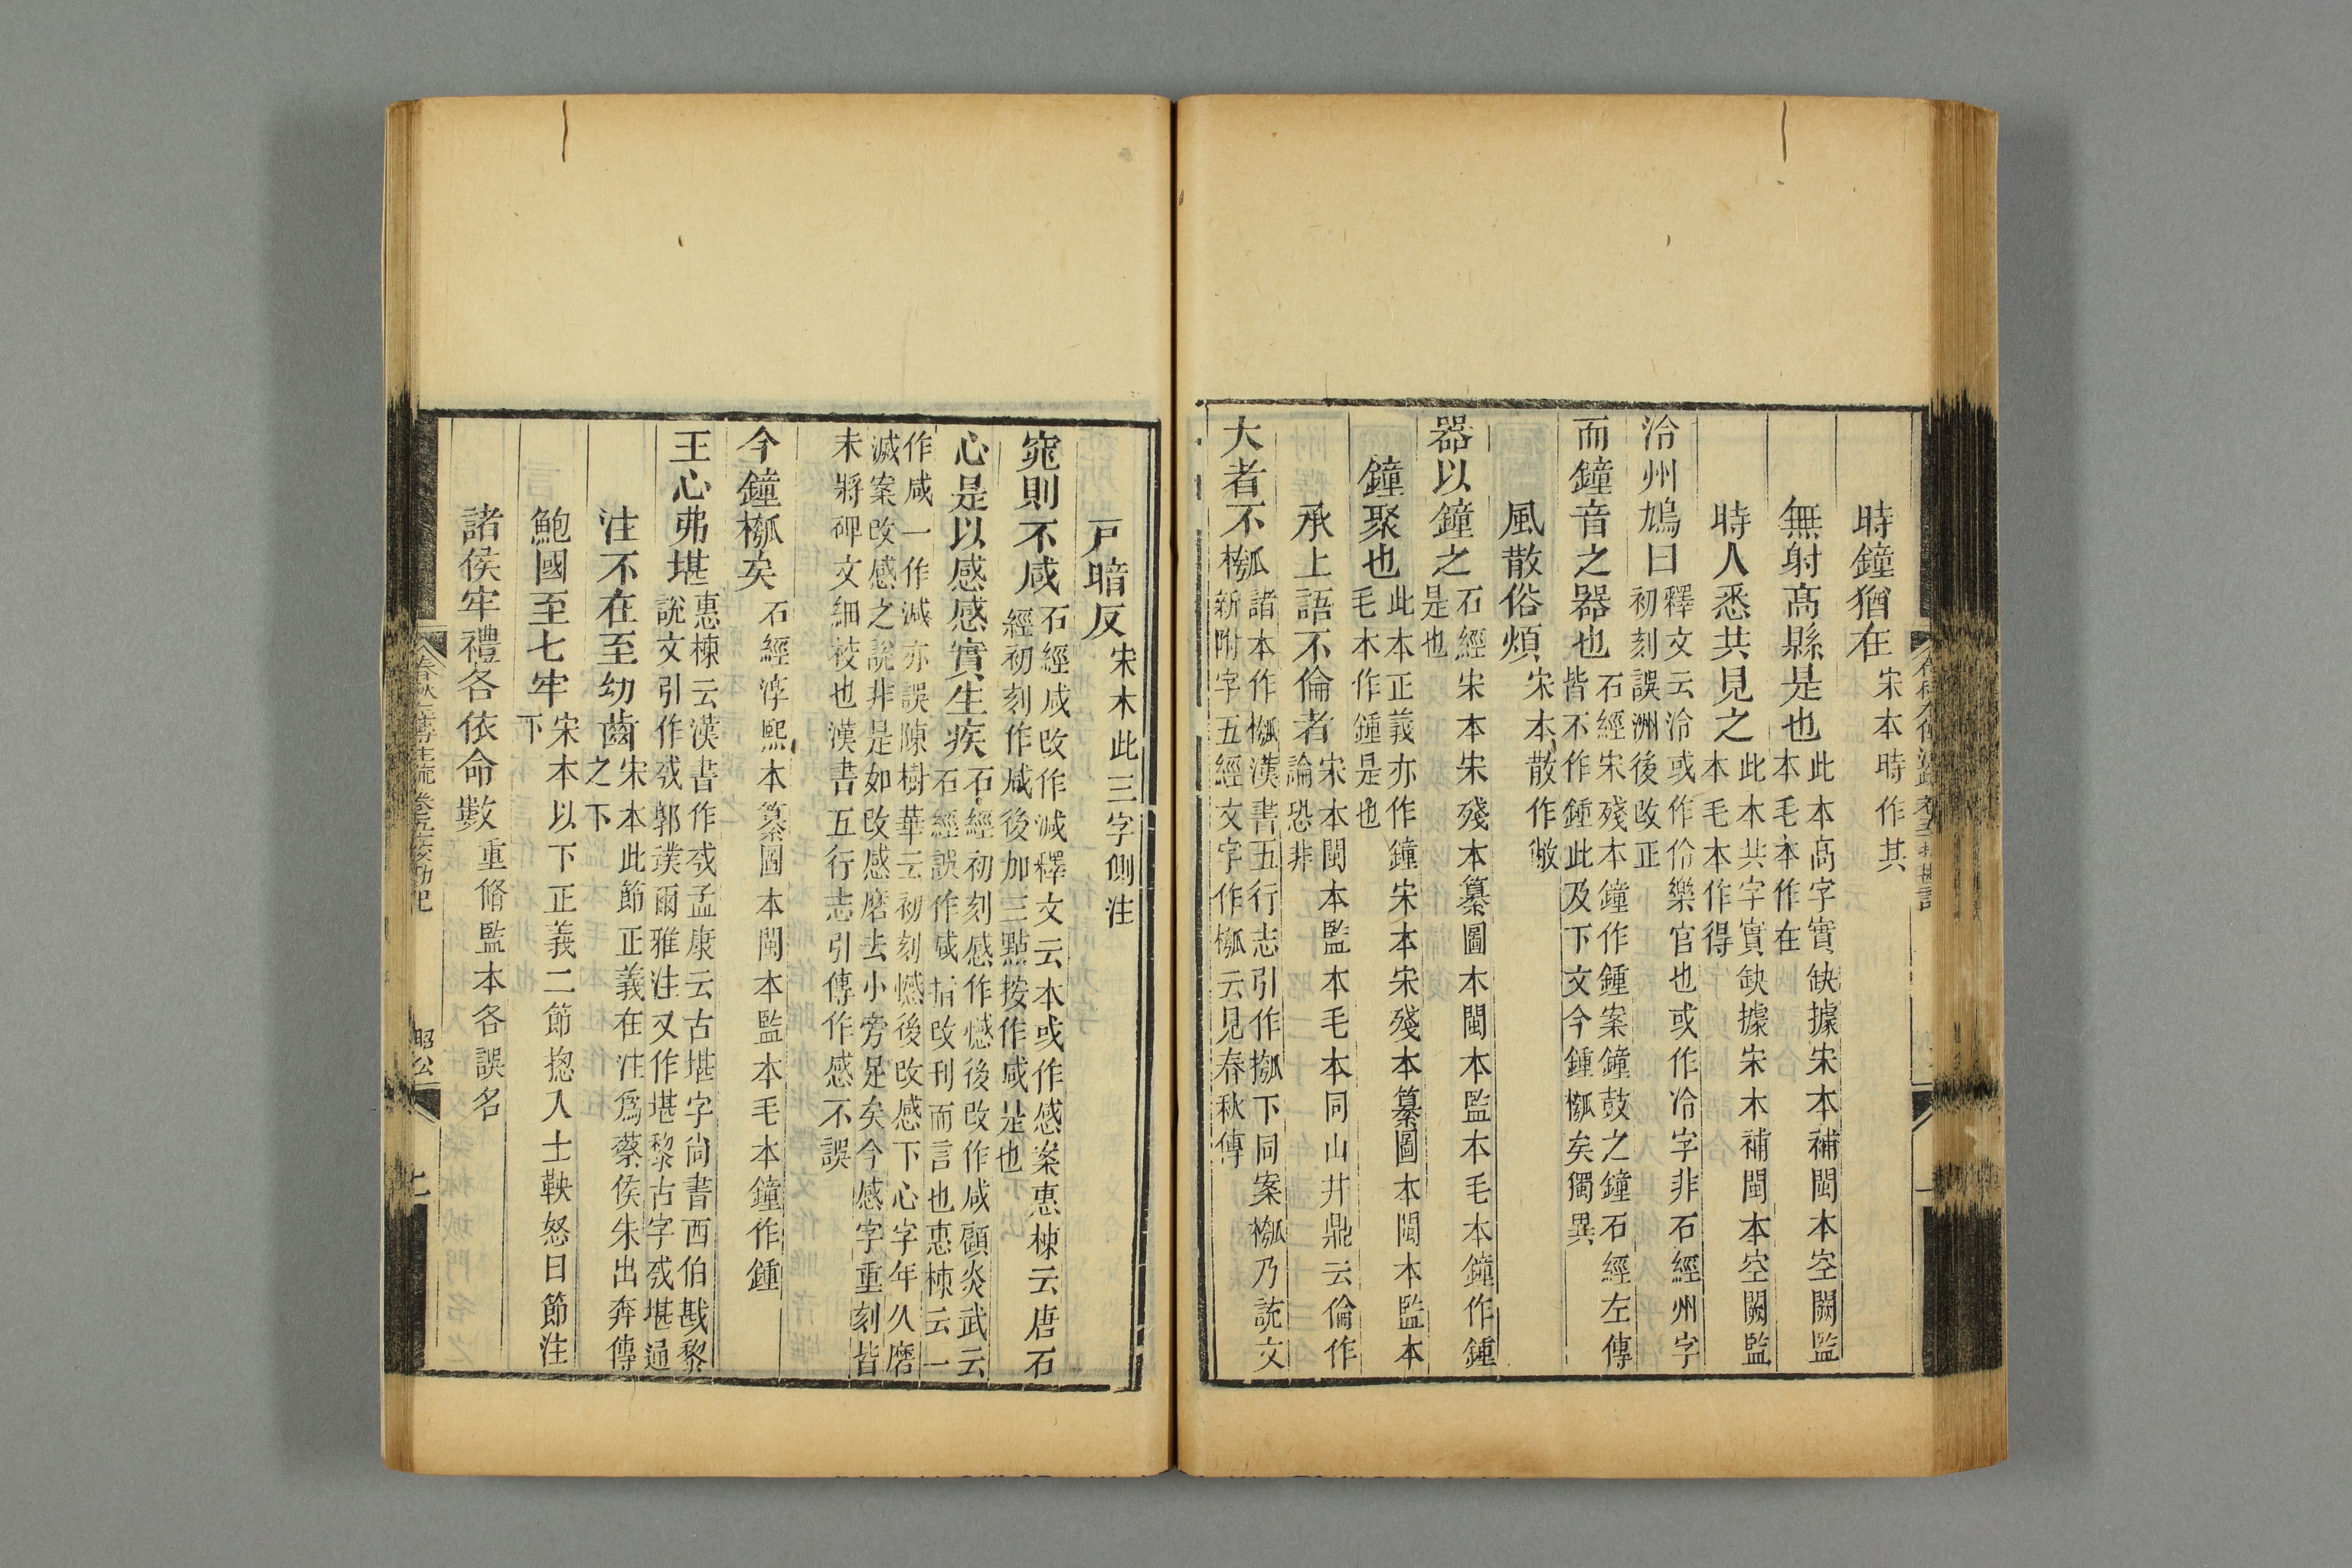 時鐘猶在宋本時作其
無射高縣是也此本高字實缺據宋本補閩本空闕監本毛本作在
時人悉共見之此本共字實缺據宋本補閩本空闕監本毛本作得
泠州鳩曰釋文云泠或作伶樂官也或作冷字非石經州字初刻誤洲後改正
而鐘音之器也石經宋殘本鐘作鍾案鐘鼓之鐘石經左傳皆不作鍾此及下文今鍾槬矣獨異
風散俗煩宋本散作㪚
器以鐘之石經宋本宋殘本纂圖本閩本監本毛本鐘作鍾是也
鐘聚也此本正義亦作鐘宋本宋殘本纂圖本閩本監本毛本作鍾是也
承上語不倫者宋本閩本監本毛本同山井鼎云倫作論恐非
大者不槬諸本作槬漢書五行志引作摦下同案槬乃說文新附字五經文字作槬云見春秋傳
戶暗反宋本此三字側注
窕則不咸石經咸改作減釋文云本或作感案惠棟云唐石經初刻作咸後加三點按作咸是也
心是以感感實生疾石經初刻感作憾後改作咸顧炎武云石經誤作咸指改刊而言也惠棟云一
作咸一作減亦誤陳樹華云初刻憾後改感下心字年久磨滅案改感之說非是如改感磨去小旁足矣今感字重刻皆
未將碑文細挍也漢書五行志引傳作感不誤
今鐘槬矣石經淳熙本纂圖本閩本監本毛本鐘作鍾
王心弗堪惠棟云漢書作㦵孟康云古堪字尚書西伯戡黎說文引作㦵郭璞爾雅注又作堪黎古字㦵堪通
注不在至幼齒宋本此節正義在注爲蔡侯朱出奔傳之下
鮑國至七牢宋本以下正義二節揔入士鞅怒曰節注下
諸侯牢禮各依命數重脩監本各誤名
昭公